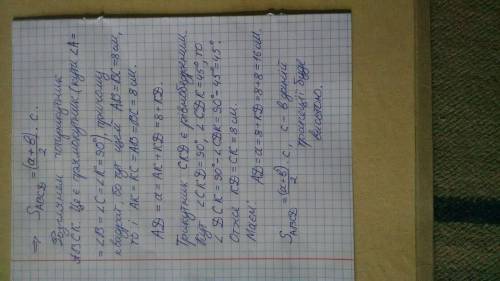 ⇒ S_ABCD = (a+b)/2 · c.
Розглянем чотирикутник
ABCK. Це є прямокутник (кути ∠A =
= ∠B = ∠C = ∠K = 90°), причому
квадрат, бо тут цьому AB = BC = 8 см,
то і AK = KC = AB = BC = 8 см.
AD = a = AK + KD = 8 + KD.
Трикутник CKD є рівнобедреним.
Кут ∠CKD = 90°, ∠CDK = 45°, то
∠DCK = 90° - ∠CDK = 90° - 45° = 45°.
Отже KD = CK = 8 см.
Маєм: AD = a = 8 + KD = 8 + 8 = 16 см.
S_ABCD = (a+b)/2 · c, c – в даній
трапеції буде
висотою.